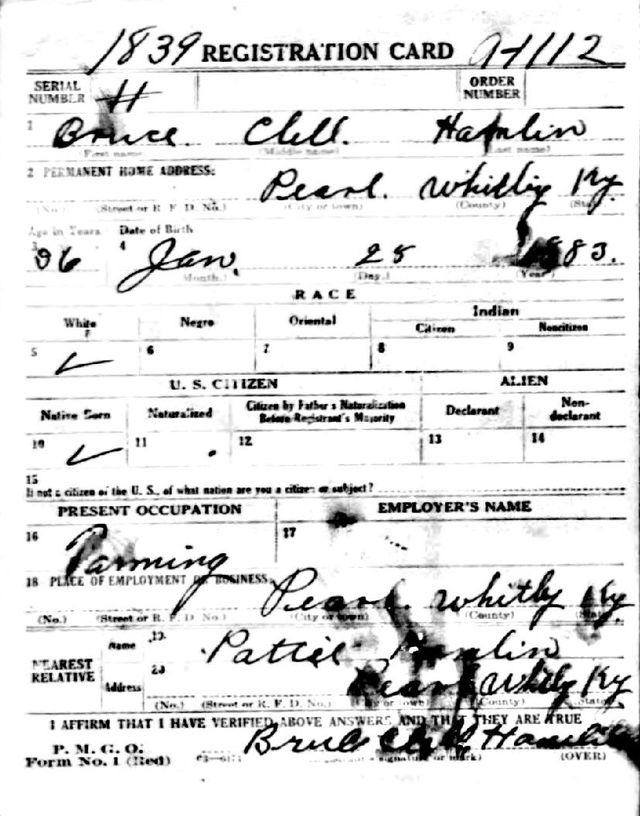 1839 REGISTRATION CARD A4112
SERIAL NUMBER ORDER NUMBER
1 Bruce Clell Hamlin
First name (Middle name) Last name)
2 PERMANENT HOME ADDRESS:
Pearl. Whitley Ky.
(No.) (Street or R. F. D. No.) (City or town) (County) (State)
Age in Years Date of Birth
3 36 4 Jan. 28 1883.
Month. (Day.) (Year)
RACE
White Negro Oriental Indian
Citizen Noncitizen
5 6 7 8 9
U. S. CITIZEN ALIEN
Native Born Naturalized Citizen by Father's Naturalization Before Registrant's Majority Declarant Non-declarant
10 11 12 13 14
15
If not a citizen of the U. S., of what nation are you a citizen or subject?
PRESENT OCCUPATION EMPLOYER'S NAME
16 Farming 17
18 PLACE OF EMPLOYMENT OR BUSINESS:
Pearl. Whitley Ky.
(No.) (Street or R. F. D. No.) (City or town) (County) (State)
NEAREST RELATIVE
Name 19 Hamlin
Address 20 Pearl Whitley Ky.
(No.) (Street or R. F. D. No.) (City or town) (County) (State)
I AFFIRM THAT I HAVE VERIFIED ABOVE ANSWERS AND THAT THEY ARE TRUE
P. M. G. O.
Form No. 1 (Red) Bruce Clell Hamlin
(signature or mark) (OVER)